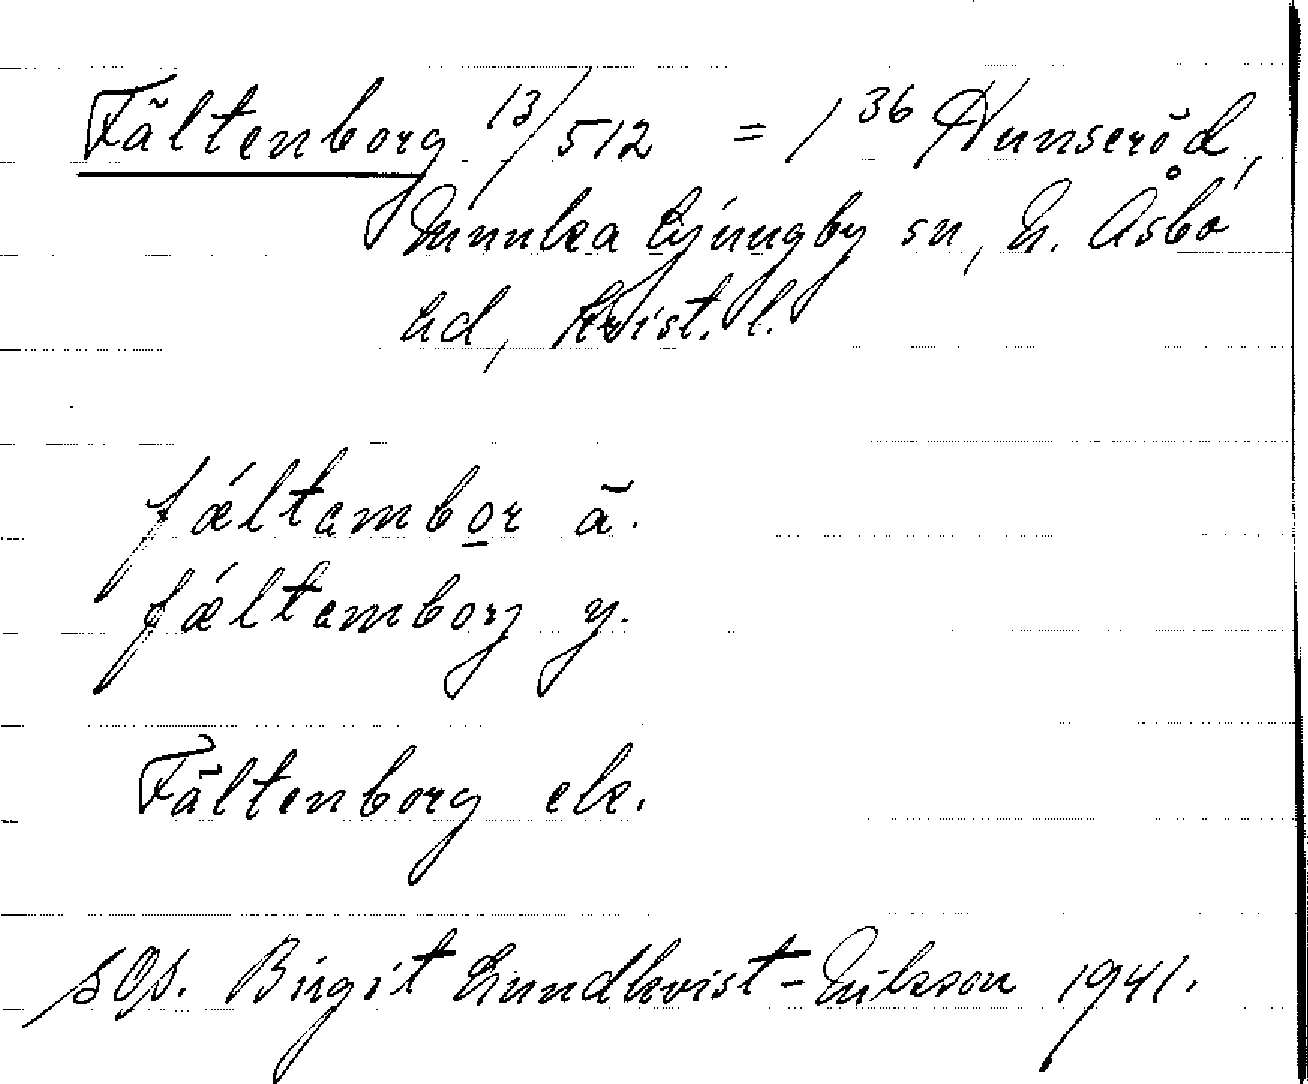 Fältenborg 13/512 = 1³⁶ Hunseröd,
Munka Ljungby sn, N. Åsbo
hd, Krist. l.
fǽltambo̲r ä.
fǽltamborj y.
Fältenborg ek.
SOS. Birgit Lundkvist-Nilsson 1941.